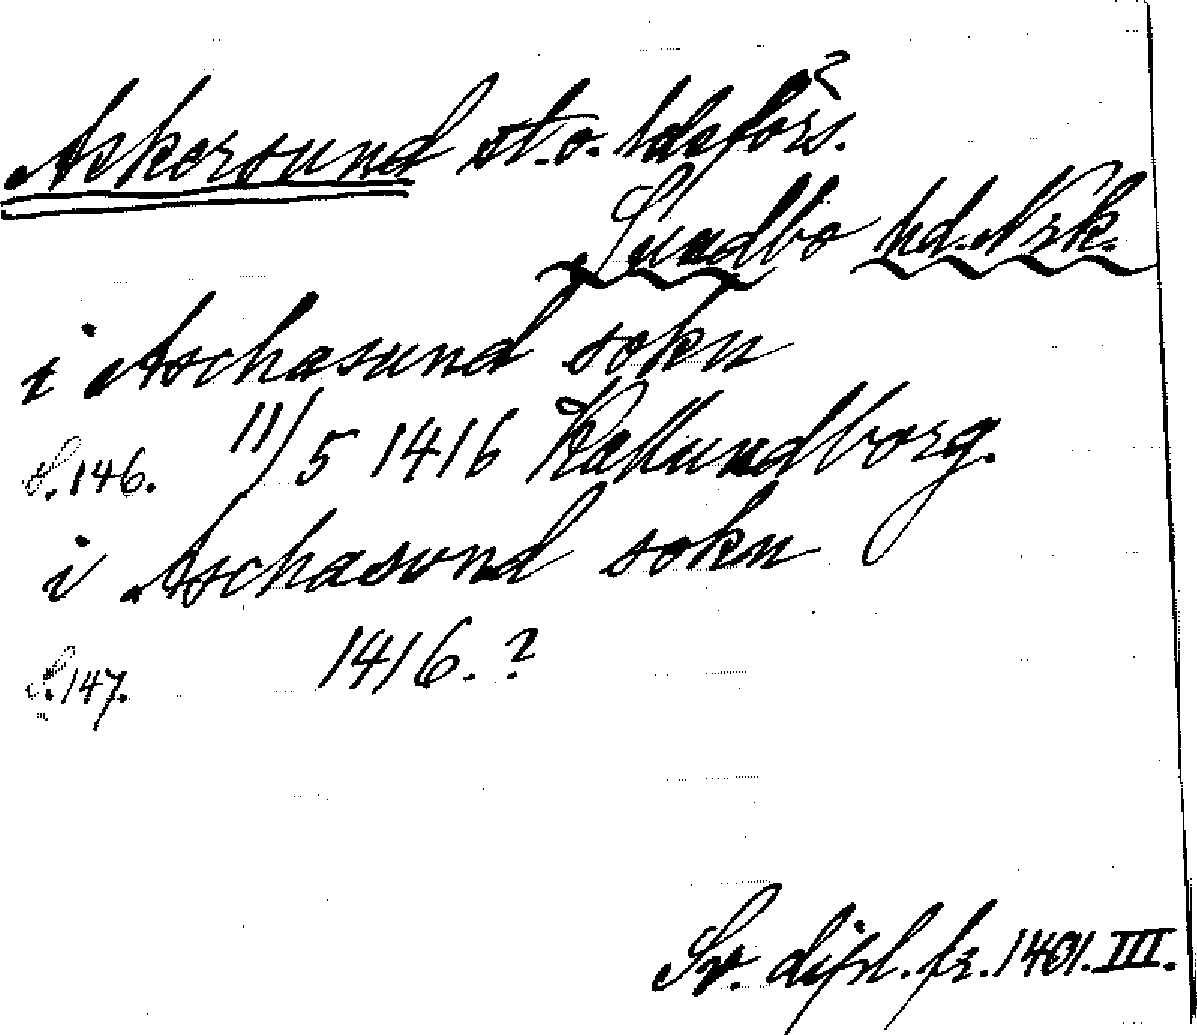 Askersund st. o. ldsförs.?
Sundbo hd. Nrk.
i Aschasund sokn
S. 146. 11/5 1416 Kallundborg.
i Aschasund sokn
S. 147. 1416. ?
Sv. dipl. fr. 1401. III.